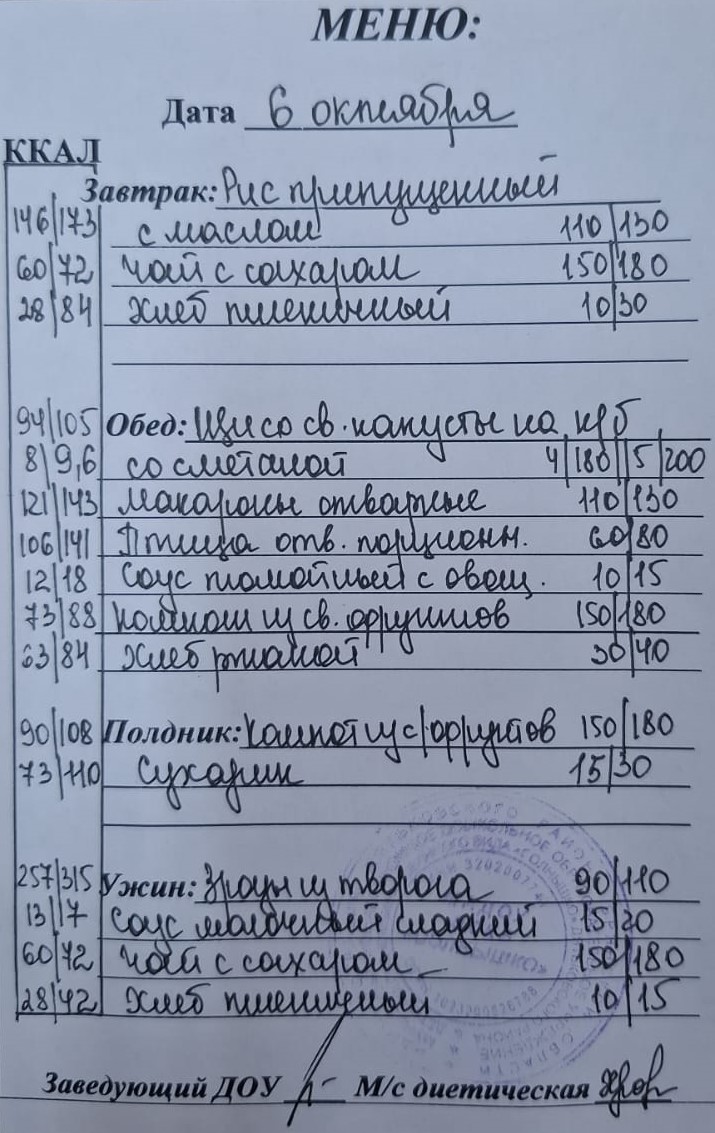 МЕНЮ:
Дата 6 октября
ККАЛ
Завтрак: Рис припущенный
146/173 с маслом 110/130
60/72 Чай с сахаром 150/180
28/84 Хлеб пшеничный 10/30
94/105 Обед: Щи со св. капусты на к/б
8/9,6 со сметаной 4/180//5/200
121/143 Макароны отварные 110/130
106/141 Птица отв. порционн. 60/80
12/18 Соус томатный с овощ. 10/15
73/88 Компот из св. фруктов 150/180
63/84 Хлеб ржаной 30/40
90/108 Полдник: Компот из с/фруктов 150/180
73/110 Сухарик 15/30
257/315 Ужин: Зразы из творога 90/110
13/17 Соус молочный сладкий 15/20
60/72 Чай с сахаром 150/180
28/42 Хлеб пшеничный 10/15
Заведующий ДОУ М/с диетическая